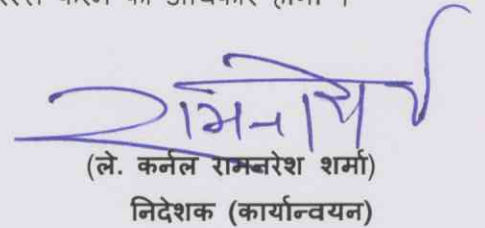 करने का अधिकार होगा ।
(ले. कर्नल रामनरेश शर्मा)
निदेशक (कार्यान्वयन)